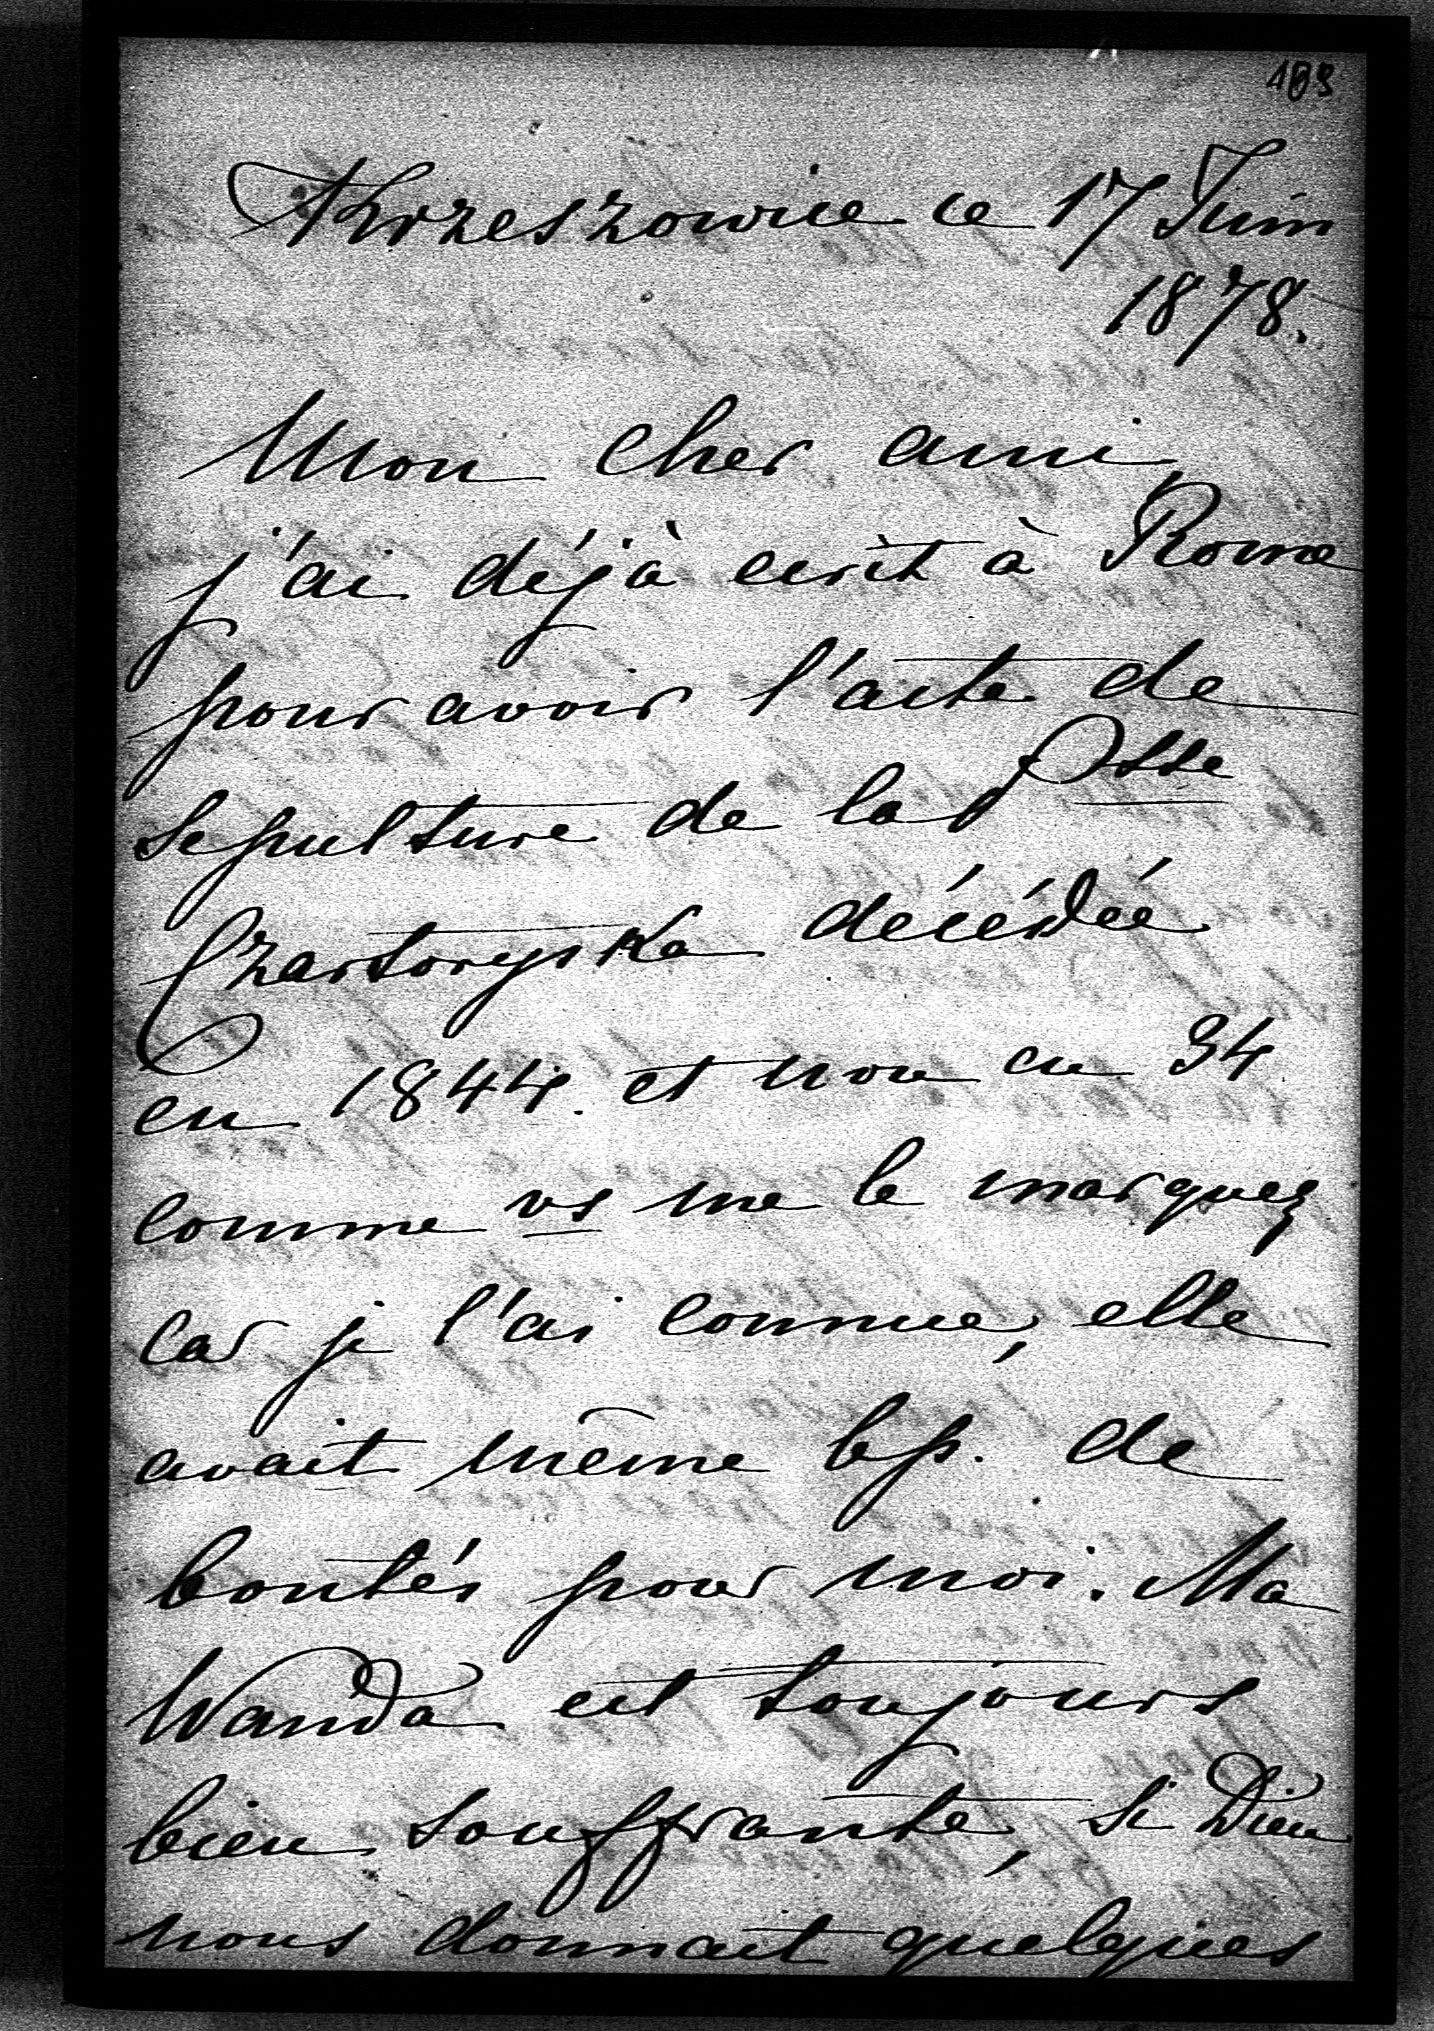 103
Krzeszowice ce 17 Juin
1878.
Mon cher ami,
j'ai déjà ecrit à Rome
pour avoir l'acte de
sepulture de la Psse
Czartoryska décédée
en 1844 et non en 34
comme vs me le marquez
car je l'ai connue, elle
avait même bp. de
bontés pour moi. Ma
Wanda est toujours
bien souffrante, si Dieu
nous donnait quelques